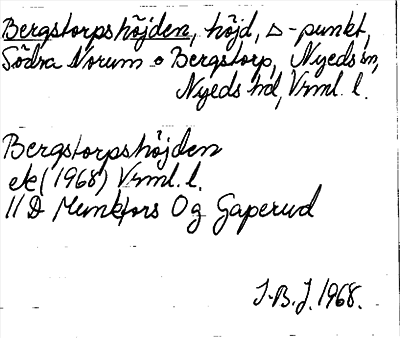 Bergstorpshöjden, höjd, △-punkt,
Södra Norum o Bergstorp, Nyeds sn,
Nyeds hd, Vrml. l.
Bergstorpshöjden
ek (1968) Vrml. l.
11 D Munkfors 0 g Gaperud
J.B.J. 1968.